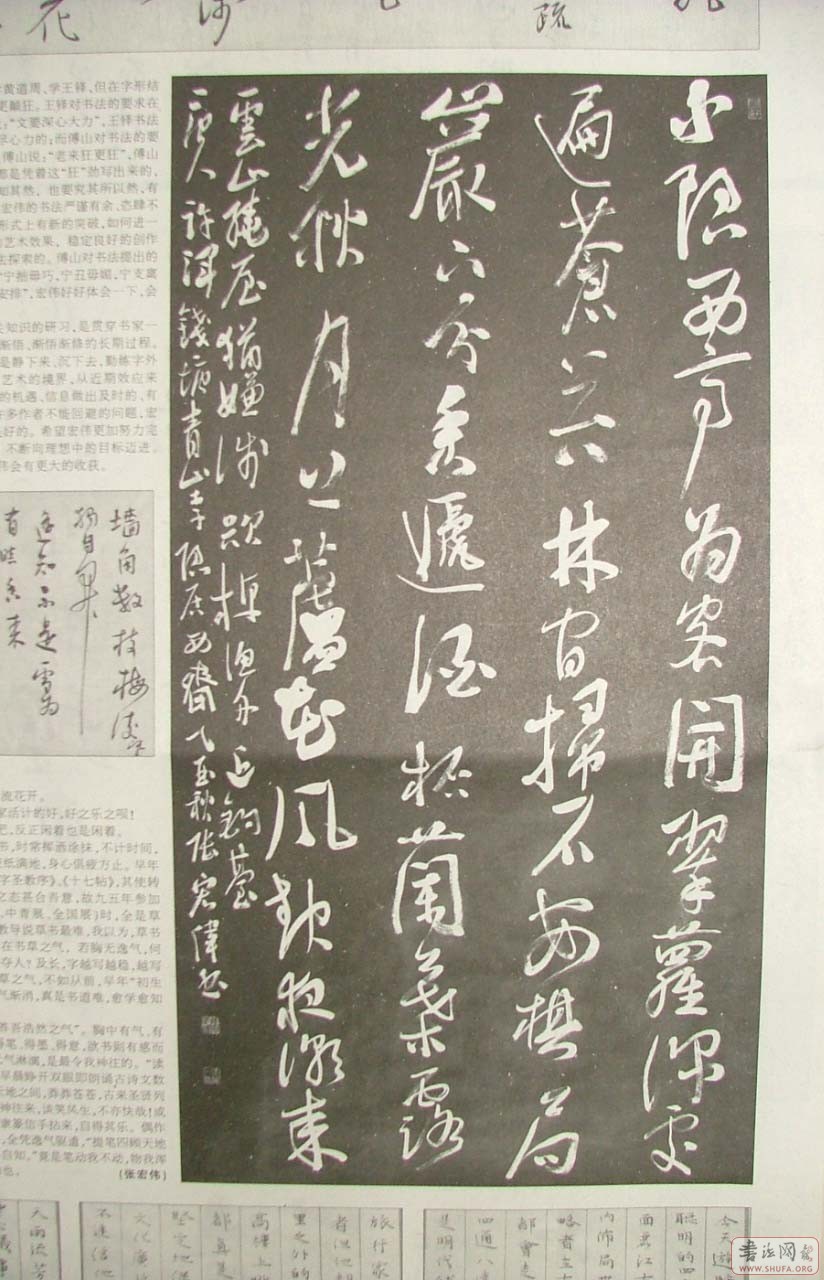 花
疏
小隐西亭为客開翠蘿深處
遍蒼苔林间掃石安棋局
巖下分泉遞酒杯蘭葉露
光秋月上蘆花风夜潮来
雲山繞屋猶嫌淺欲棹漁舟近釣臺
唐人許渾錢塘青山李隐居西齋乙酉秋张宏偉书
黄道周、学王铎,但在字形结
更颠狂。王铎对书法的要求在
:“文要深心大力”,王铎书法
尽心力的;而傅山对书法的要
傅山说:“老来狂更狂”,傅山
都是凭着这“狂”劲写出来的,
知其然,也要究其所以然,有
宏伟的书法严谨有余,恣肆不
形式上有新的突破,如何进一
的艺术效果,稳定良好的创作
去探索的。傅山对书法提出的
“宁拙毋巧,宁丑毋媚,宁支离
安排”,宏伟好好体会一下,会
关知识的研习,是贯穿书家一
渐悟、渐悟渐修的长期过程。
是静下来,沉下去,勤练字外
艺术的境界,从近期效应来
的机遇,信息做出及时的,有
许多作者不能回避的问题,宏
良好的。希望宏伟更加努力完
不断向理想中的目标迈进。
伟会有更大的收获。
墙角数枝梅凌寒
獨自開
遥知不是雪为
有暗香来
流花开。
家活计的好,好之乐之呗!
吧,反正闲着也是闲着。
书,时常挥洒涂抹,不计时间,
废纸满地,身心俱疲方止。早年
字圣教序》、《十七帖》,其使转
之志甚合吾意,故九五年参加
中青展、全国展)时,全是草
教导说草书最难,我以为,草书
在书草之气,若胸无逸气,何
夺人?及长,字越写越稳,越写
草之气,不如从前,早年“初生
气渐消,真是书道难,愈学愈知
养吾浩然之气”。胸中有气,有
得笔、得墨、得意,故书则有感而
元气淋漓,是最令我神往的。“读
早晨睁开双眼即朗诵古诗文数
天地之间,莽莽苍苍,古来圣贤列
神往来,谈笑风生,不亦快哉!或
隶篆信手拈来,自得其乐。偶作
全凭逸气驱遣,“提笔四顾天地
自知,”竟是笔动我不动,物我浑
也。
(张宏伟)
今天
聪明的四
四通八
是明代
旅行家
者
里之外的
書法网
WWW.SHUFA.ORG